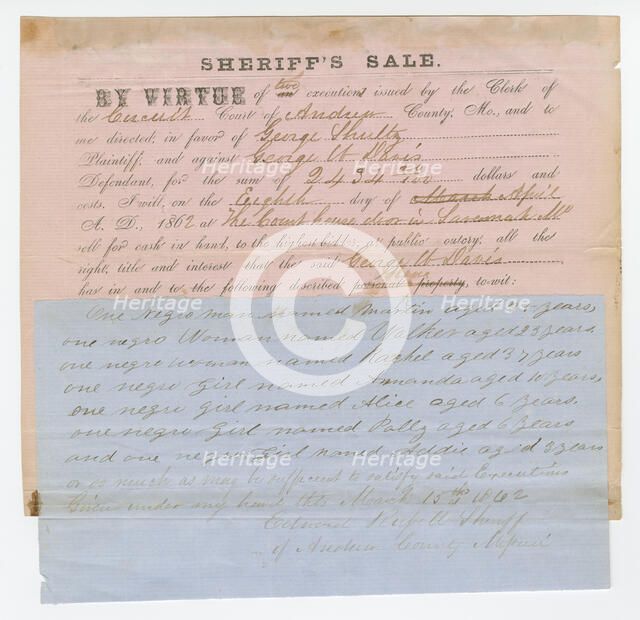 SHERIFF'S SALE.
BY VIRTUE of two an executions issued by the Clerk of
the Circuit Court of Andrew County, Mo., and to
me directed, in favor of George Shultz
Plaintiff, and against George W Davis
Defendant, for the sum of 2434 dollars and
costs. I will, on the Eighth day of March April
A. D., 1862 at The Court house door in Savannah Mo
sell for cash in hand, to the highest bidder, at public outcry, all the
right, title and interest that the said George W Davis
has in and to the following discribed personal property, to-wit:
One Negro man named Martin aged years,
one negro Woman named aged 23 years
one negro woman named Rachel aged 37 years
one negro Girl named Amanda aged 10 years,
one negro girl named Alice aged 6 years,
one negro Girl named Polly aged 6 years
and one negro Girl named Addie aged 3 years
or so much as may be sufficient to satisfy said Executions
Given under my hand this March 15th 1862
Edmond Sheriff
of Andrew County Missouri
Heritage
Heritage
Heritage
Heritage
Heritage
Heritage
Heritage
Heritage